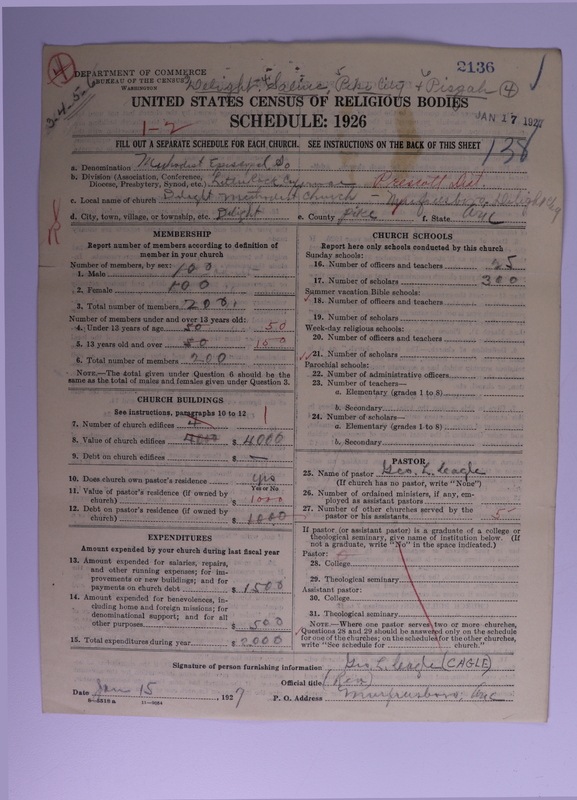 4
DEPARTMENT OF COMMERCE
BUREAU OF THE CENSUS
WASHINGTON
3-4-5-6
Delight, Saline, Pike City + Pisgah 4
2136
UNITED STATES CENSUS OF RELIGIOUS BODIES
JAN 17 192
1-2
SCHEDULE: 1926
138
FILL OUT A SEPARATE SCHEDULE FOR EACH CHURCH. SEE INSTRUCTIONS ON THE BACK OF THIS SHEET
a. Denomination Methodist Episcopal So
b. Division (Association, Conference, Diocese, Presbytery, Synod, etc.) Little Rock Prescott Dist.
c. Local name of church Delight Methodist Church - Murfreesboro & Delight
d. City, town, village, or township, etc. Delight e. County Pike f. State Ark
MEMBERSHIP
Report number of members according to definition of
member in your church
Number of members, by sex:
1. Male 100
2. Female 100
3. Total number of members 200
Number of members under and over 13 years old:
4. Under 13 years of age 50 50
5. 13 years old and over 150
6. Total number of members 200
NOTE.—The total given under Question 6 should be the
same as the total of males and females given under Question 3.
CHURCH BUILDINGS
See instructions, paragraphs 10 to 12
7. Number of church edifices 4 1
8. Value of church edifices 4000 $ 4000
9. Debt on church edifices $ —
10. Does church own pastor's residence yes
Yes or No
11. Value of pastor's residence (if owned by
church) $ 1000
12. Debt on pastor's residence (if owned by
church) $ 1000
EXPENDITURES
Amount expended by your church during last fiscal year
13. Amount expended for salaries, repairs,
and other running expenses; for im-
provements or new buildings; and for
payments on church debt $ 1500
14. Amount expended for benevolences, in-
cluding home and foreign missions; for
denominational support; and for all
other purposes $ 500
15. Total expenditures during year $ 2000
CHURCH SCHOOLS
Report here only schools conducted by this church
Sunday schools:
16. Number of officers and teachers 25
17. Number of scholars 300
Summer vacation Bible schools:
18. Number of officers and teachers
19. Number of scholars
Week-day religious schools:
20. Number of officers and teachers
21. Number of scholars
Parochial schools:
22. Number of administrative officers
23. Number of teachers—
a. Elementary (grades 1 to 8)
b. Secondary
24. Number of scholars—
a. Elementary (grades 1 to 8)
b. Secondary
PASTOR
25. Name of pastor Geo. L. Cagle
(If church has no pastor, write "None")
26. Number of ordained ministers, if any, em-
ployed as assistant pastors
27. Number of other churches served by the
pastor or his assistants 5
If pastor (or assistant pastor) is a graduate of a college or
theological seminary, give name of institution below. (If
not a graduate, write "No" in the space indicated.)
Pastor:
28. College
29. Theological seminary
Assistant pastor:
30. College
31. Theological seminary
NOTE.—Where one pastor serves two or more churches,
Questions 28 and 29 should be answered only on the schedule
for one of the churches; on the schedules for the other churches,
write "See schedule for church."
Signature of person furnishing information Geo. L. Cagle (CAGLE)
Official title (Rev)
Date Jan 15, 1927 P. O. Address Murfreesboro, Ark